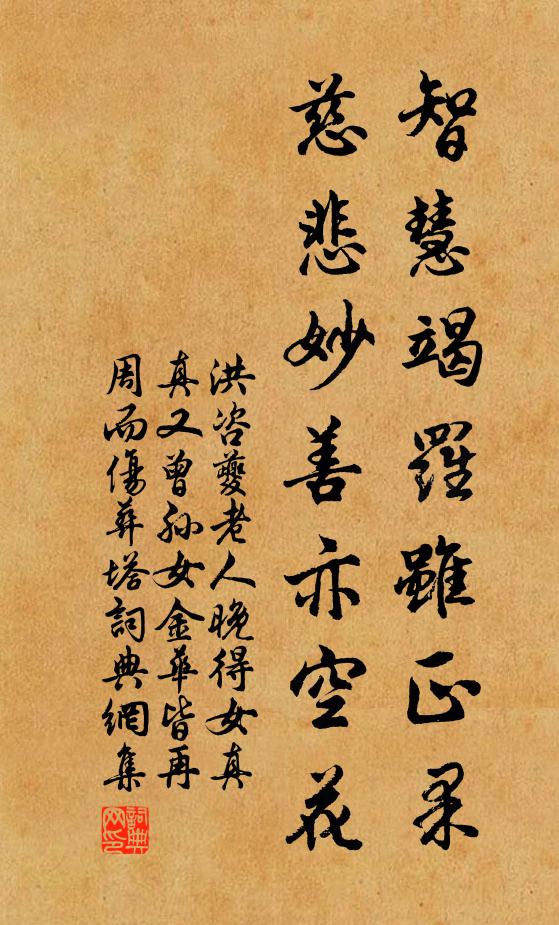 智慧竭羅雖正果
慈悲妙善亦空花
洪咨夔老人晚得女真
真又曾孫女金華皆再
周而傷葬塔詞典網集
詞典網印